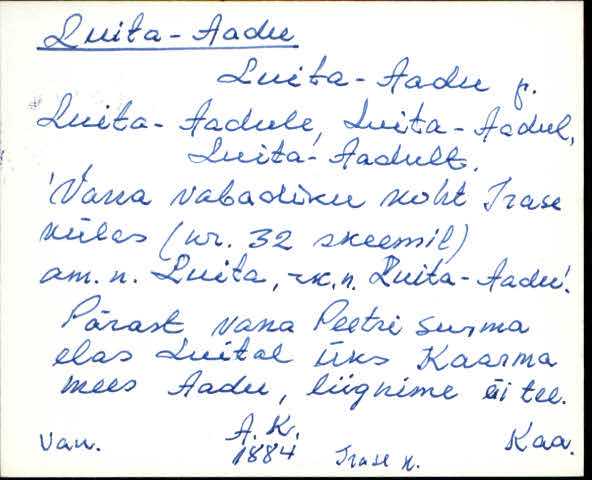 Luita-Aadu
Luita-Aadu p.
Luita-Aadule, Luita-Aadul,
Luita-Aadult.
'Vana vabadiku koht Irase
külas (nr. 32 skeemil)
am. n. Luita, rk. n. Luita-Aadu'.
Pärast vana Peetri surma
elas Luital üks Kaarma
mees Aadu, liignime äi tee.
Van. A. K. Kaa.
1884 Irase k.